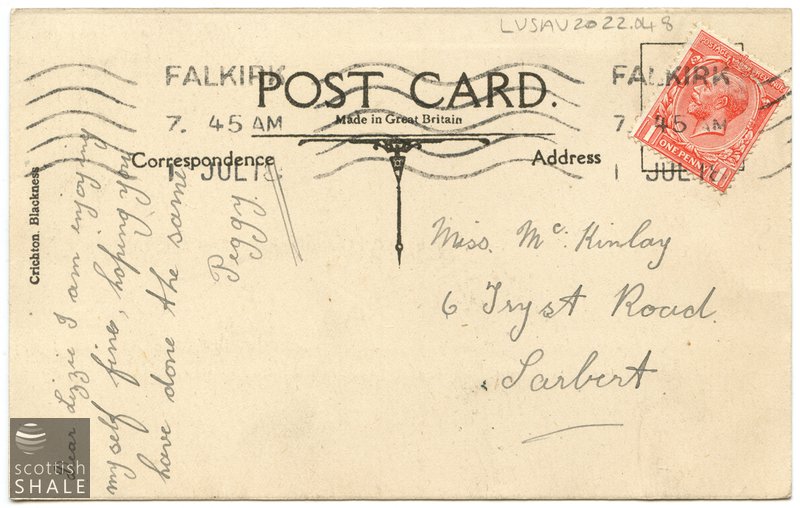 LVSAV2022.048
FALKIRK
7. 45 AM
1 JUL 18
POST CARD.
Made in Great Britain
FALKIRK
7. 45 AM
1 JUL 18
ONE PENNY
Correspondence
Address
Crichton. Blackness
Dear Lizzie I am enjoying
myself fine, hoping you
have done the same
Peggy.
Miss. Mc. Kinlay
6 Tryst Road.
Larbert
scottish
SHALE